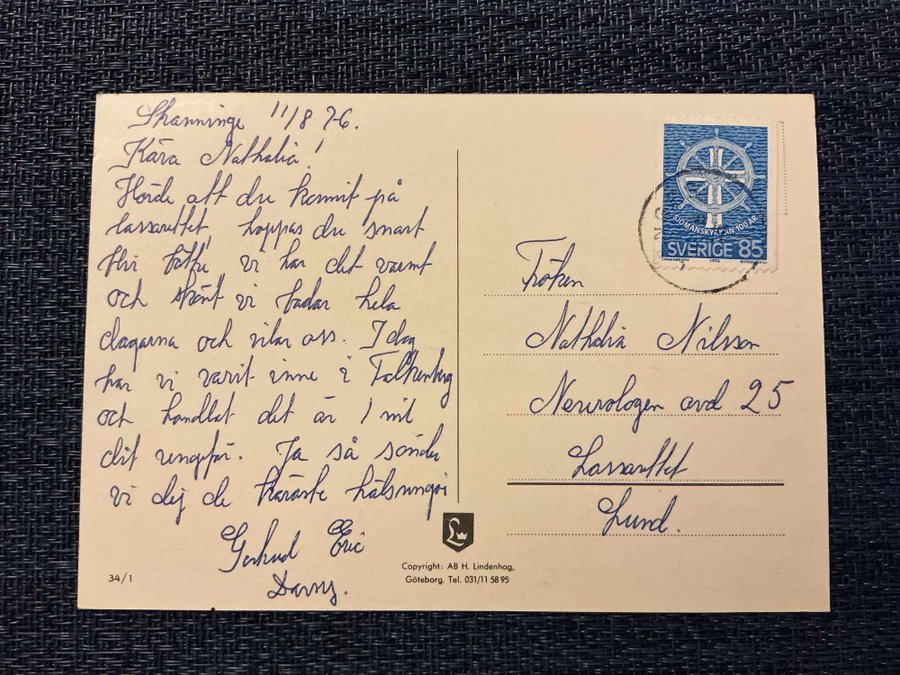 Skanninge 11/8 76.
Kära Nathalia!
Hörde att du kommit på
lassarettet, hoppas du snart
blir bättre vi har det varmt
och skönt vi badar hela
dagarna och vilar oss. I dag
har vi varit inne i Falkenberg
och handlat det är 1 mil
dit ungefär. Ja så sänder
vi dej de käraste hälsningar
Gertrud Eric
Danny.
34/1
SJÖMANSKYRKAN 100 ÅR
SVERIGE 85
1976
Fröken
Nathalia Nilsson
Neurologen avd 25
Lassarettet
Lund.
Copyright: AB H. Lindenhag,
Göteborg. Tel. 031/11 58 95